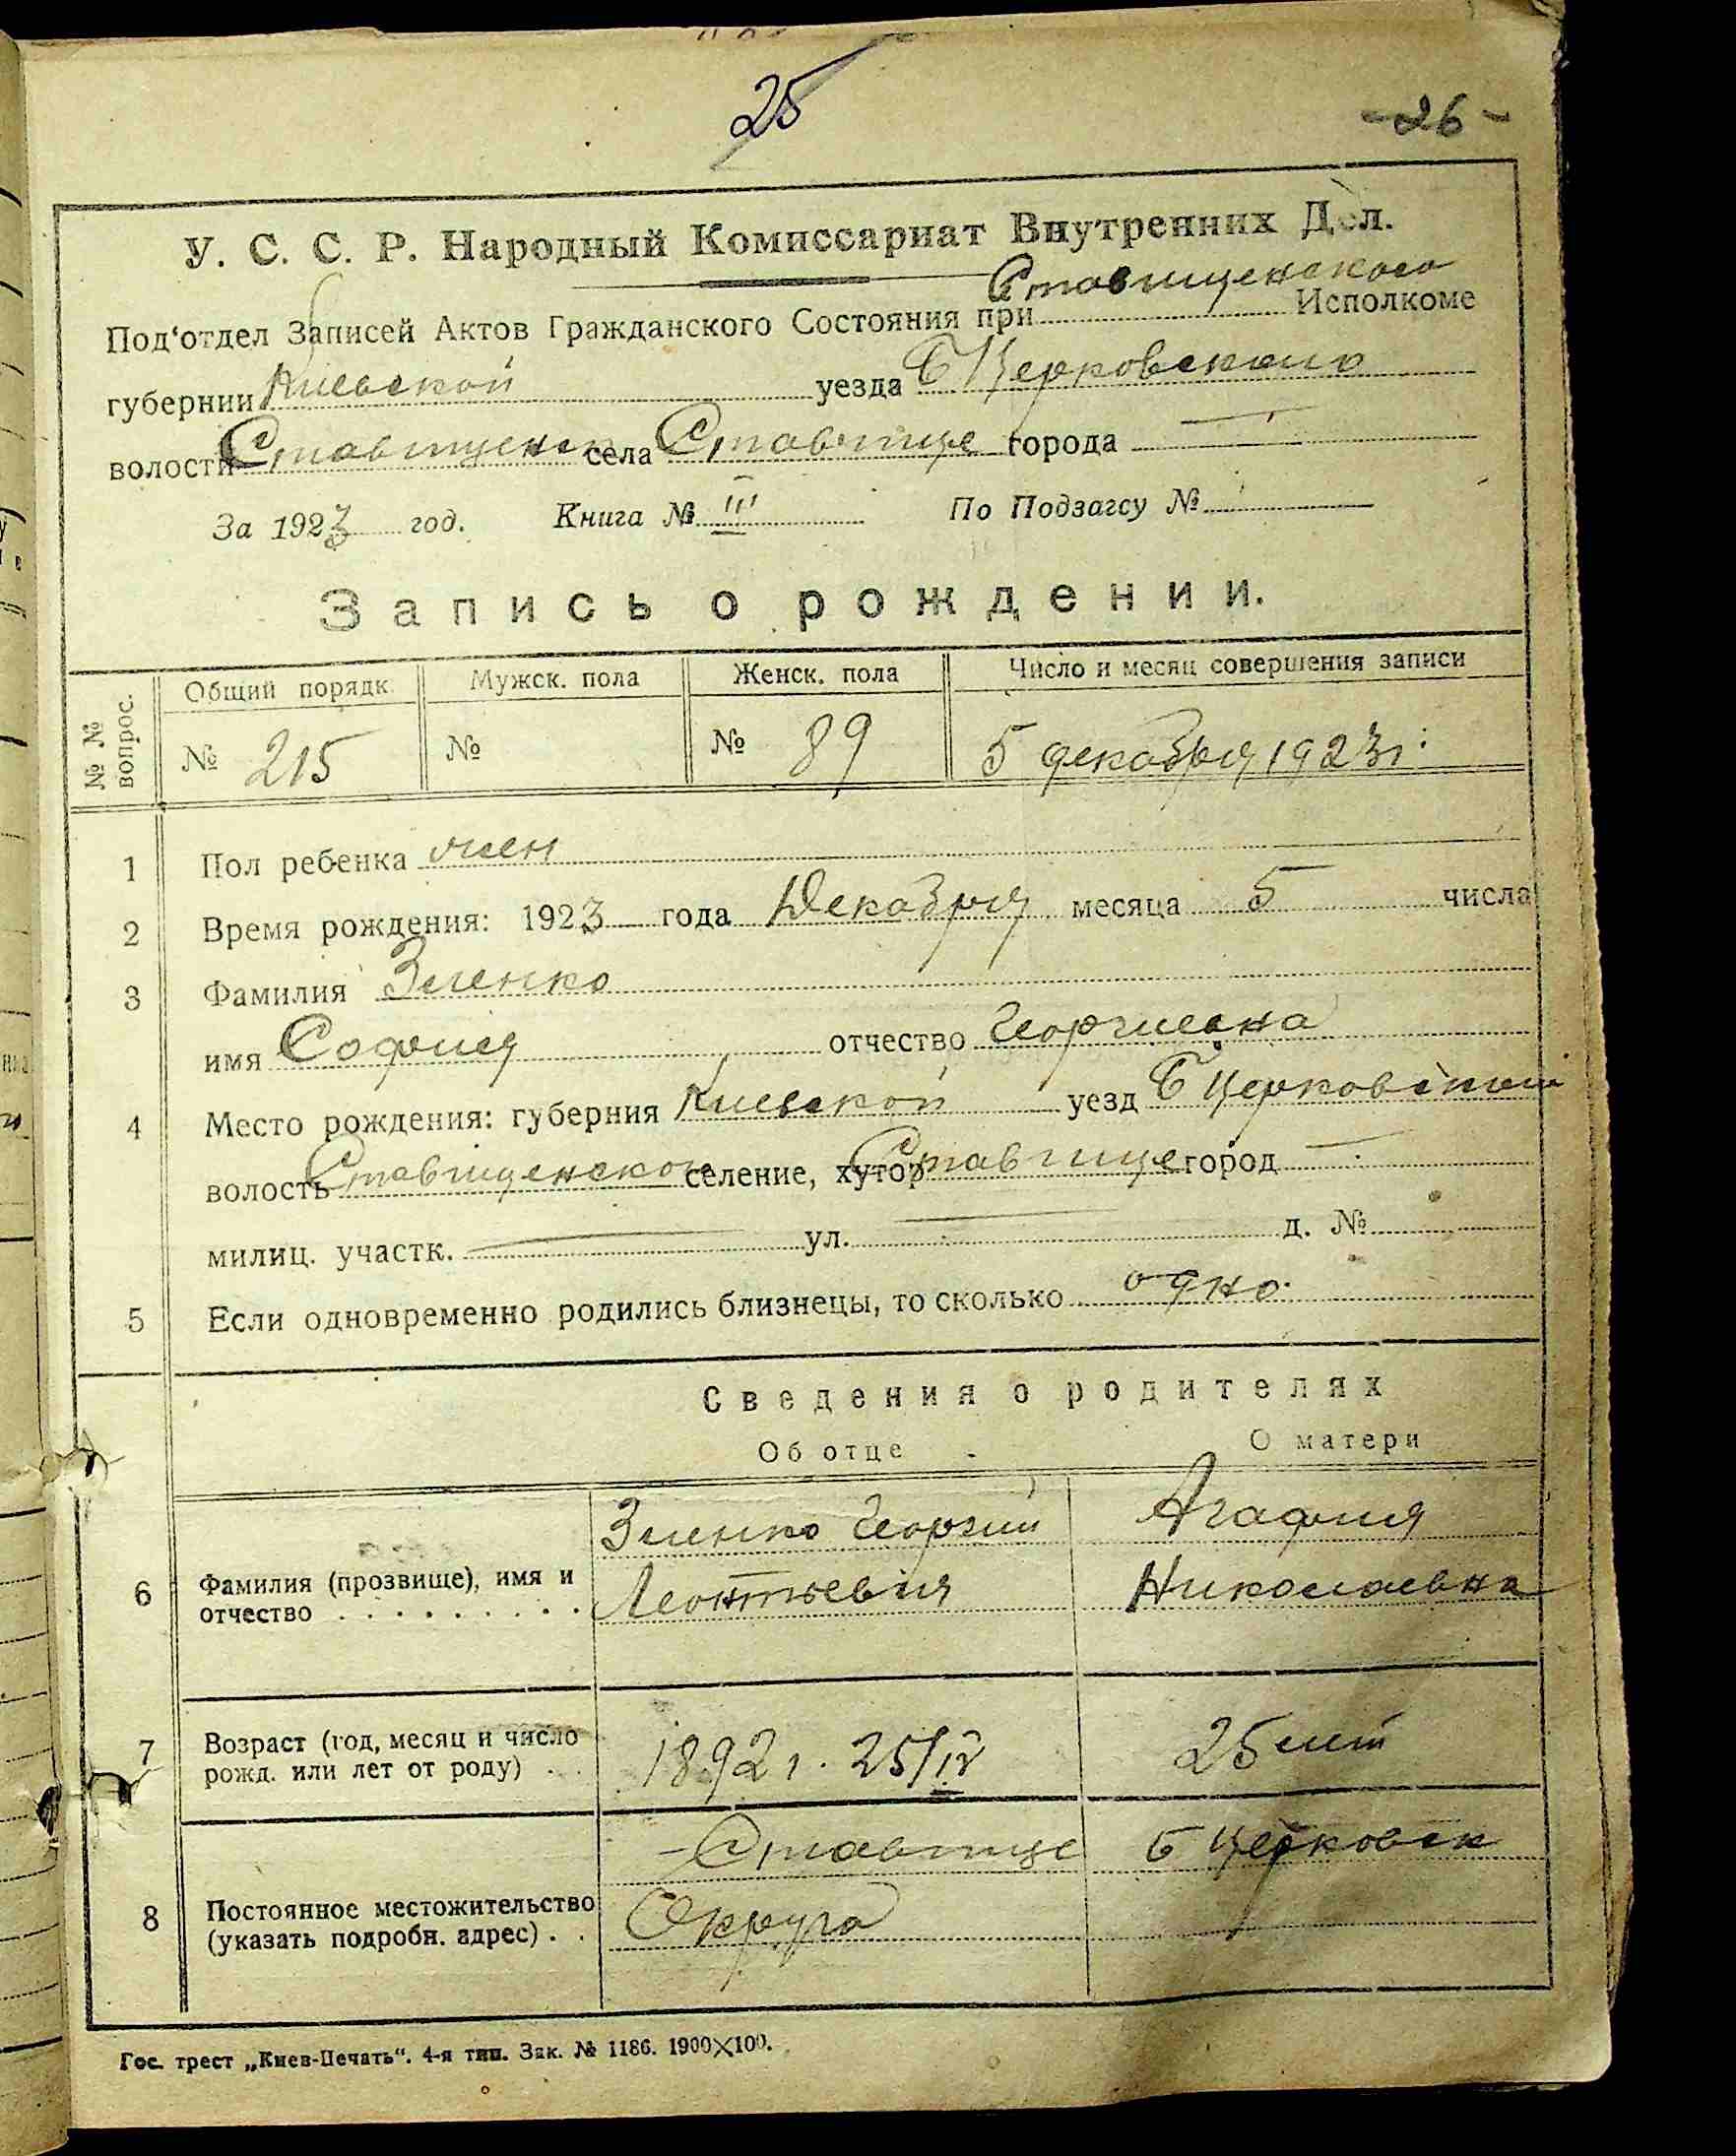 25
-26-
У. С. С. Р. Народный Комиссариат Внутренних Дел.
Под‘отдел Записей Актов Гражданского Состояния при Ставищенского Исполкоме
губернии Киевской уезда Б Церковского
волости Ставищенск села Ставище города —
За 1923 год. Книга № III По Подзагсу №
Запись о рождении.
№ № вопрос. Общий порядк. Мужск. пола Женск. пола Число и месяц совершения записи
№ 215 № № 89 5 декабря 1923 г.
1 Пол ребенка жен
2 Время рождения: 1923 года Декабря месяца 5 числа
3 Фамилия Зиенко
имя София отчество Георгиевна
4 Место рождения: губерния Киевской уезд Б Церковский
волость Ставищенской селение, хутор Ставище город —
милиц. участк. — ул. — д. №
5 Если одновременно родились близнецы, то сколько одно.
Сведения о родителях
Об отце О матери
Зиенко Георгий Агафия
6 Фамилия (прозвище), имя и отчество . . . . . . . . . Леонтьевич Николаевна
7 Возраст (год, месяц и число рожд. или лет от роду) . . 1892 г. 25/IV 25 лет
Ставище Б Церковск
8 Постоянное местожительство (указать подробн. адрес) . . Округа
Гос. трест „Киев-Печать“. 4-я тип. Зак. № 1186. 1900×100.